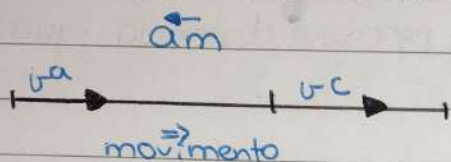 am
va vc
movimento